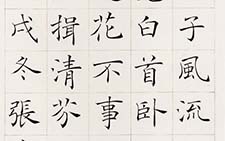 子風流
白首卧
花不事
揖清芬
戌冬張